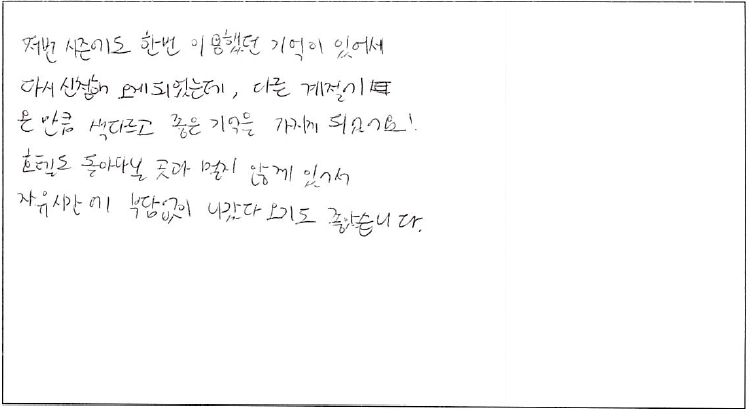 저번 시즌에도 한번 이용했던 기억이 있어서
다시 신청해 오게 되었는데, 다른 계절에
온 만큼 색다르고 좋은 기억을 가지게 되었어요!
호텔도 돌아다닐 곳과 멀지 않게 있어서
자유시간에 부담없이 나갔다 오기도 좋았습니다.